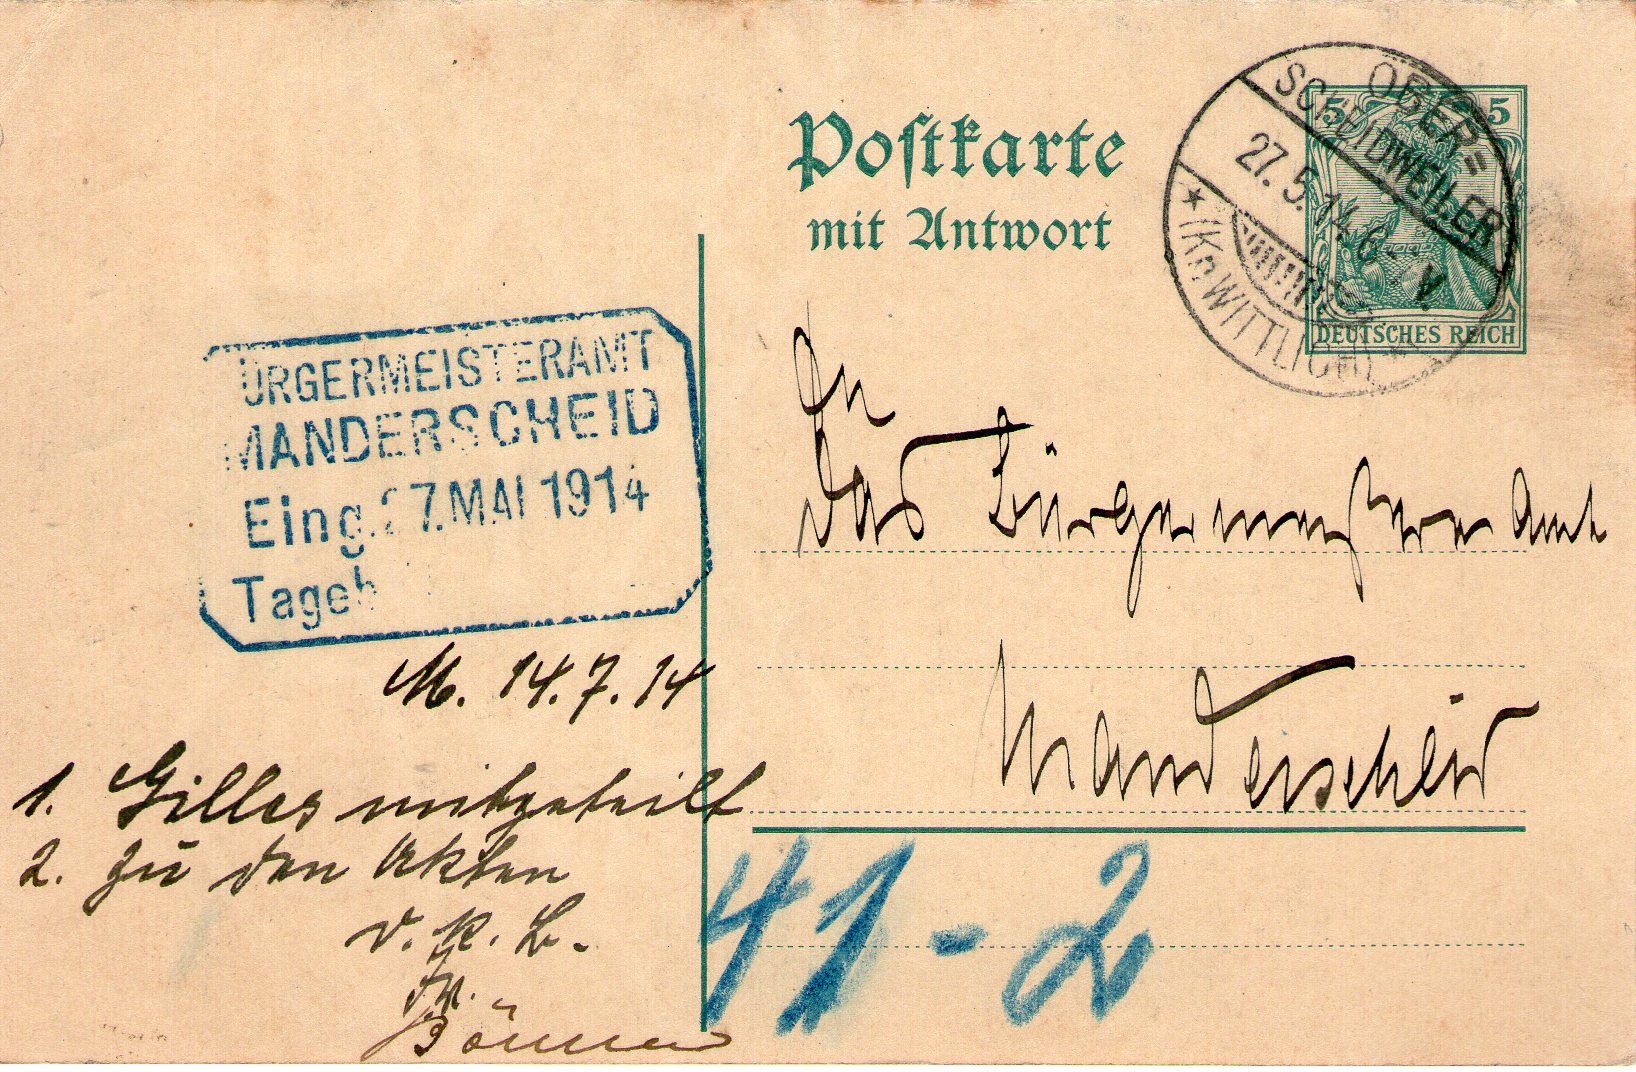 Postkarte
mit Antwort
5 5
DEUTSCHES REICH
OBER=
SCHEIDWEILER
27.5.14.6 V.
* (Kr. WITTLICH) *
ÜRGERMEISTERAMT
MANDERSCHEID
Eing. 27. MAI 1914
Tageb
An
das Bürgermeister Amt
Manderscheid
M. 14.7.14
1. Gilles mitgeteilt
2. zu den Akten
D. K. B.
41-2